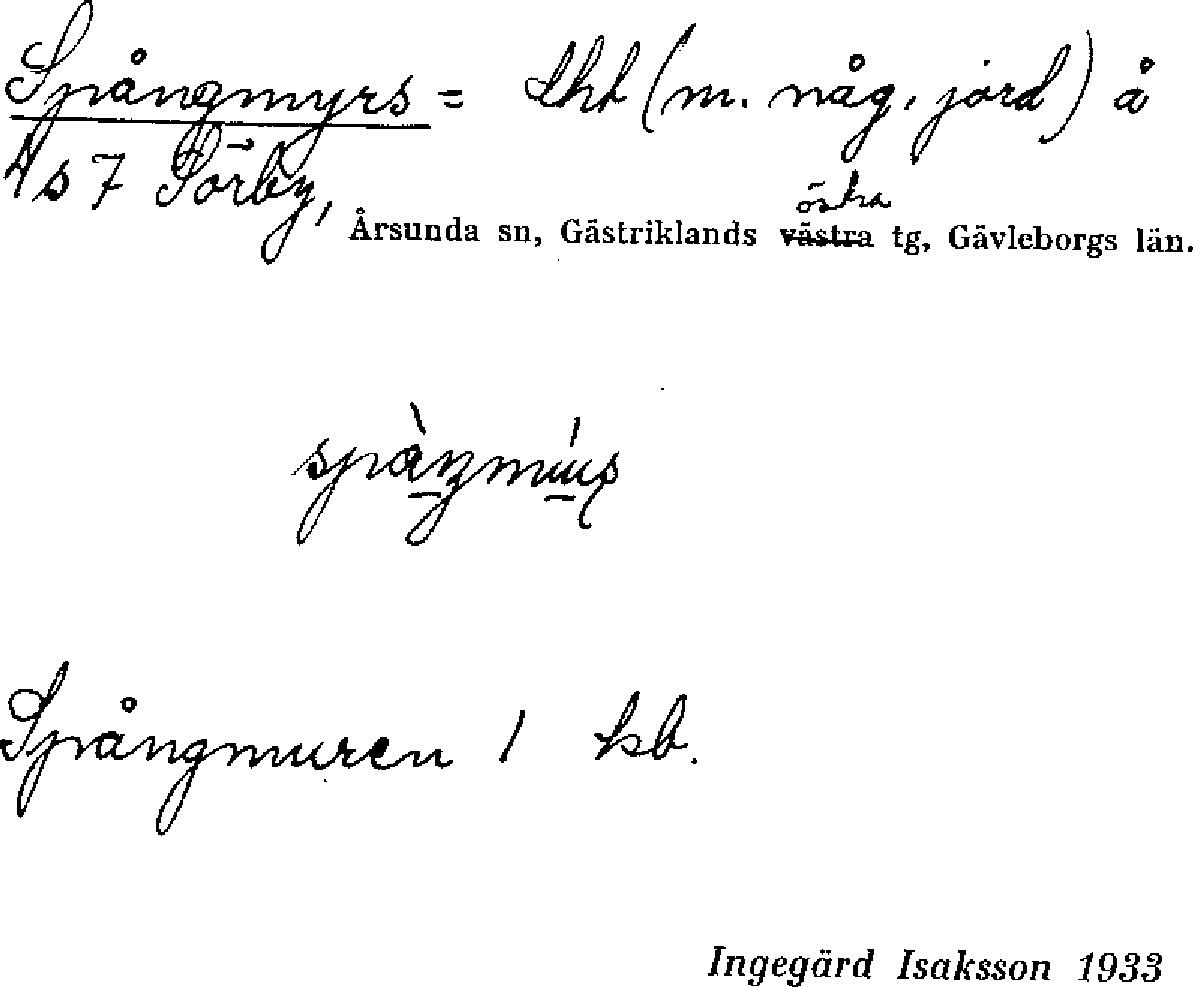 Spångmyrs = lht (m. någ. jord) å
As 7 Sörby,
östra
Årsunda sn, Gästriklands västra tg, Gävleborgs län.
Spångmuren 1 kb.
Ingegärd Isaksson 1933